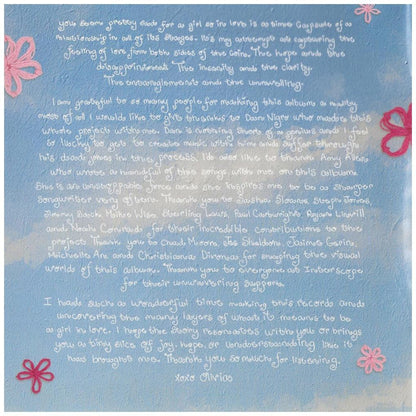 you seem pretty sad for a girl so in love is a time capsule of a
relationship in all of its stages. It's my attempt at capturing the
feeling of love from both sides of the coin. The hope and the
disappointment. The insanity and the clarity.
The entanglement and the unravelling.
I am grateful to so many people for making this album a reality.
most of all I would like to give thanks to Dan Nigro who made this
whole project with me. Dan is nothing short of a genius and I feel
so lucky to get to create music with him and suffer through
his dad jokes in the process. I'd also like to thank Amy Allen
who wrote a handful of the songs with me on this album.
She is an unstoppable force and she inspires me to be a sharper
songwriter very often. Thank you to Sasha Sloane, Steph Jones,
Sterling Laws, Paul Cartwright,
and Noah Conrad for their incredible contributions to the
project. Thank you to Chad Moore,
Michelle An and Christiana Divona for shaping the visual
world of this album. Thank you to everyone at Interscope
for their unwavering support.
I had such a wonderful time making this record and
uncovering the many layers of what it means to be
a girl in love. I hope the story resonates with you or brings
you a tiny slice of joy, hope, or understanding like it
has brought me. Thank you so much for listening.
xoxo Olivia